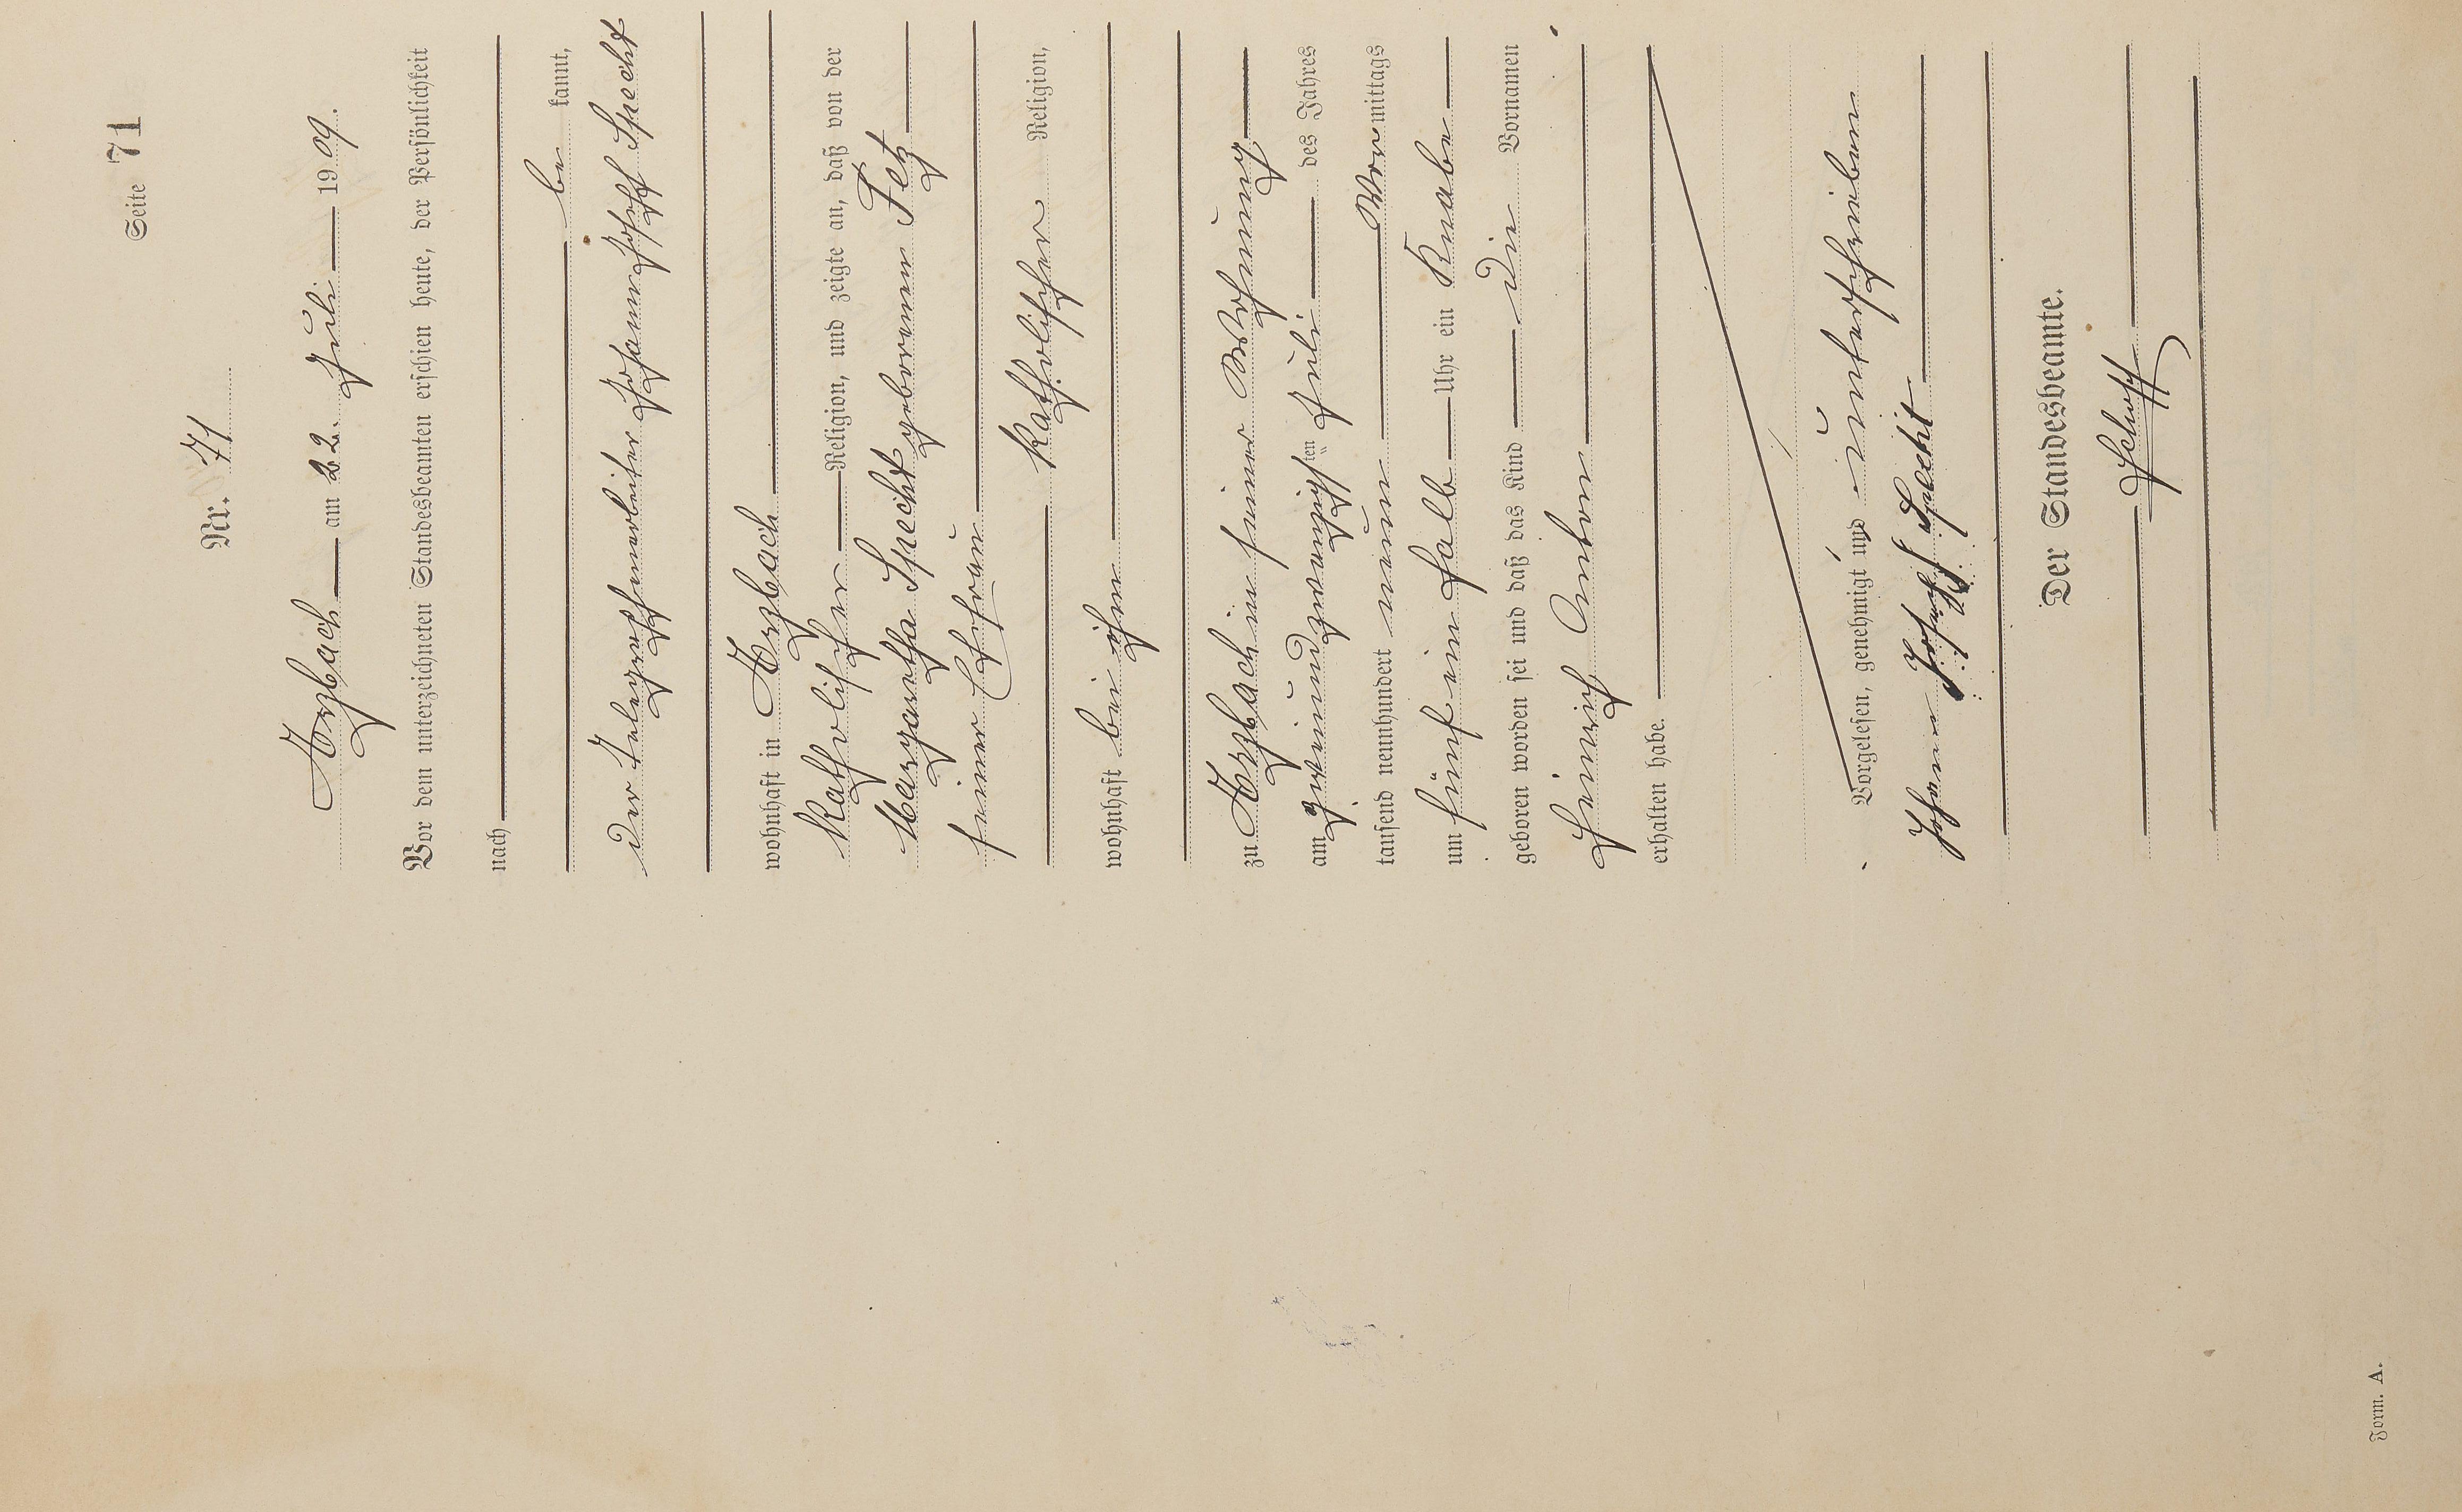 Seite 71
Nr. 71
Arzbach am 22. Juli 1909.
Vor dem unterzeichneten Standesbeamten erschien heute, der Persönlichkeit
nach
be kannt,
der Telegraphenarbeiter Johann Joseph Specht
wohnhaft in Arzbach
katholischer Religion, und zeigte an, daß von der
Margaretha Specht geborenen Fetz
seiner Ehefrau
katholischer Religion,
wohnhaft bei ihm
zu Arzbach in seiner Wohnung
am zweiundzwanzigsten Juli des Jahres
tausend neunhundert neun Vormittags
um fünf ein halb Uhr ein Knabe
geboren worden sei und daß das Kind die Vornamen
Heinrich Anton
erhalten habe.
Vorgelesen, genehmigt und unterschrieben
Johann Joseph Specht
Der Standesbeamte.
Form. A.